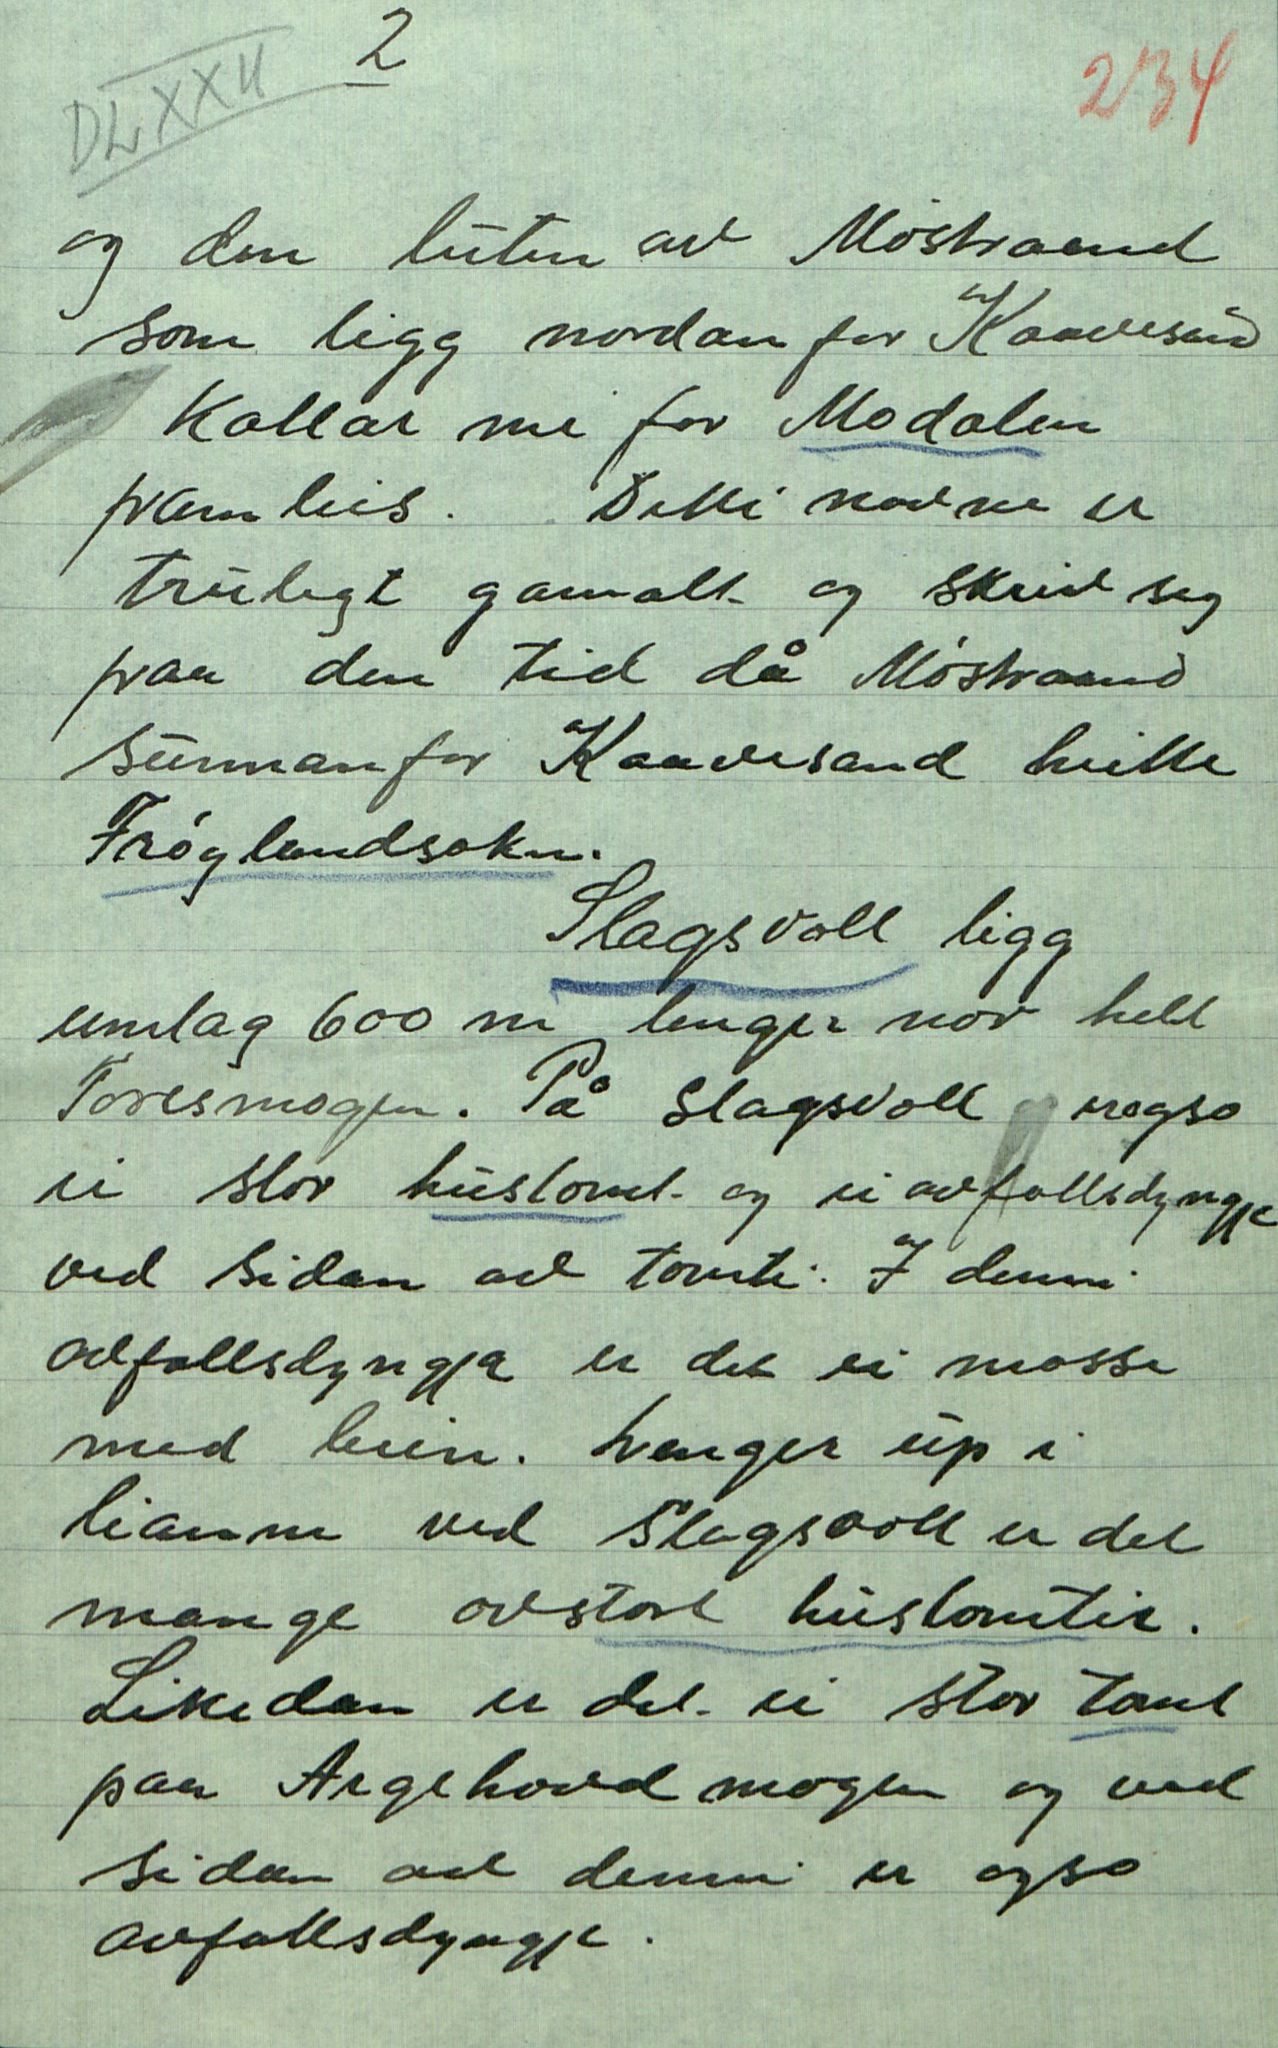 2
DLXXII
234
og den luten av Møstraand
som ligg nordanfor Kaavesand
kallar me for Modalen
framleis. Detti navne er
trulegt gamalt og skriv seg
fraa den tid då Møstraand
sunnanfor Kaavesand heitte
Frøylandsokn.
Slagsvoll ligg
umlag 600 m lenger nor hell
Toresmogen. På Slagsvoll er ogso
ei stor hustomt og ei avfallsdyngje
ved sidan av tomti. I denni
avfallsdyngja er det ei masse
med bein. Lenger up i
lianne ved Slagsvoll er det
mange ovstore hustomtir.
Likedan er det ei stor tomt
paa Argehovd mogen og ved
sidan av denni er ogso
avfallsdyngje.